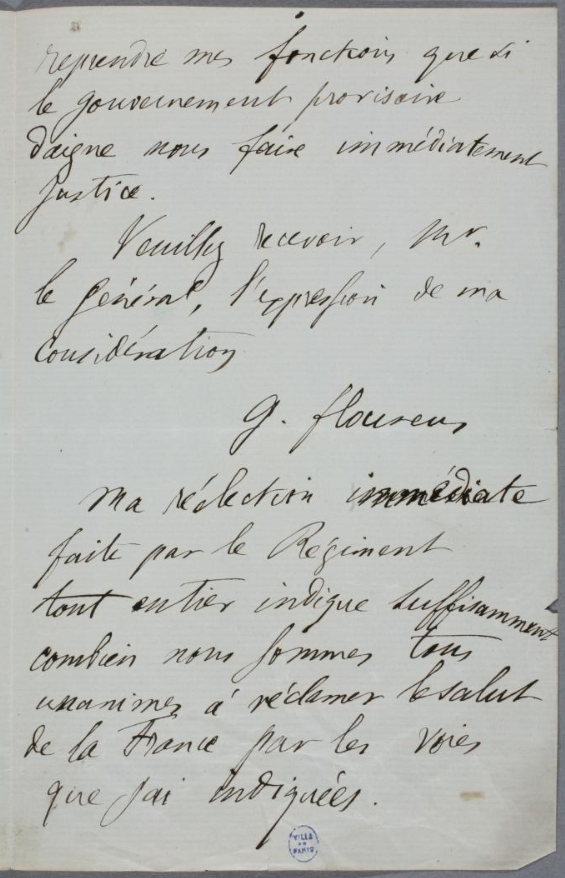 reprendre mes fonctions que si
le gouvernement provisoire
daigne nous faire immédiatement
justice.
Veuillez recevoir, Mr.
le Général, l'expression de ma
considération
G. Flourens
Ma réélection immédiate
faite par le Régiment
tout entier indique suffisamment
combien nous sommes tous
unanimes à réclamer le salut
de la France par les voies
que j'ai indiquées.
VILLE
DE
PARIS